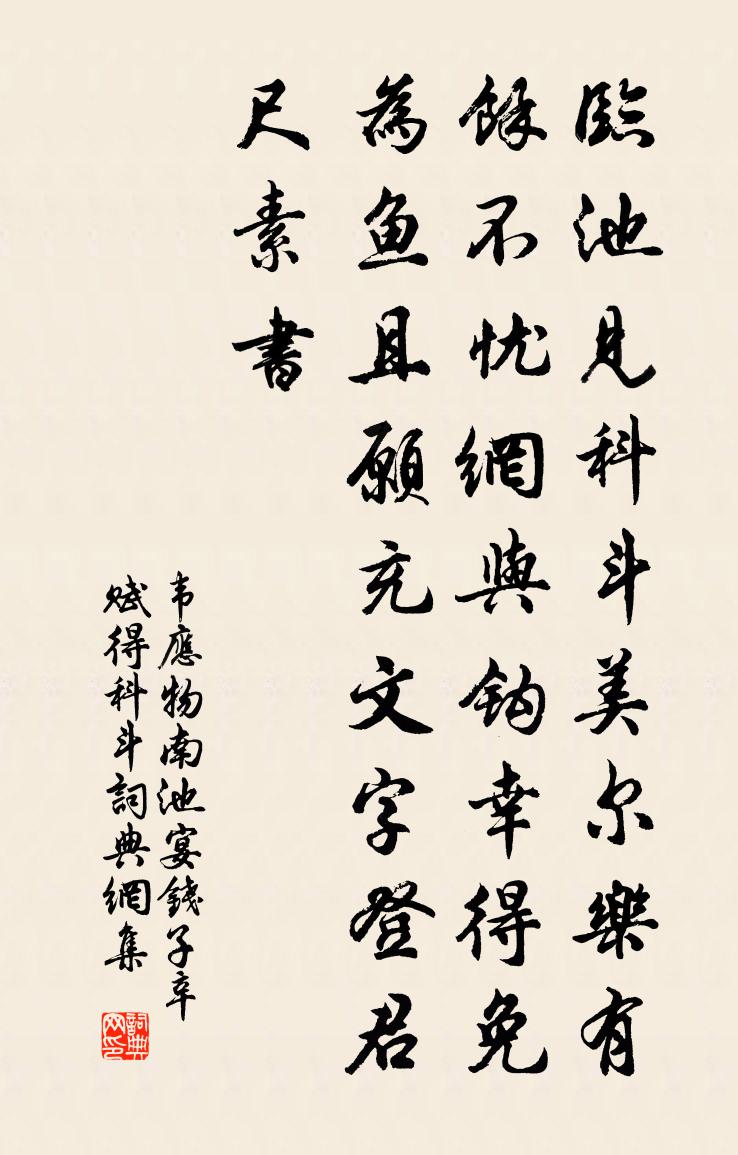 臨池見科斗美尔樂有
餘不忧網與鈎幸得免
為魚且願充文字登君
尺素書
韦應物南池宴錢子辛
赋得科斗詞典網集
詞典网印